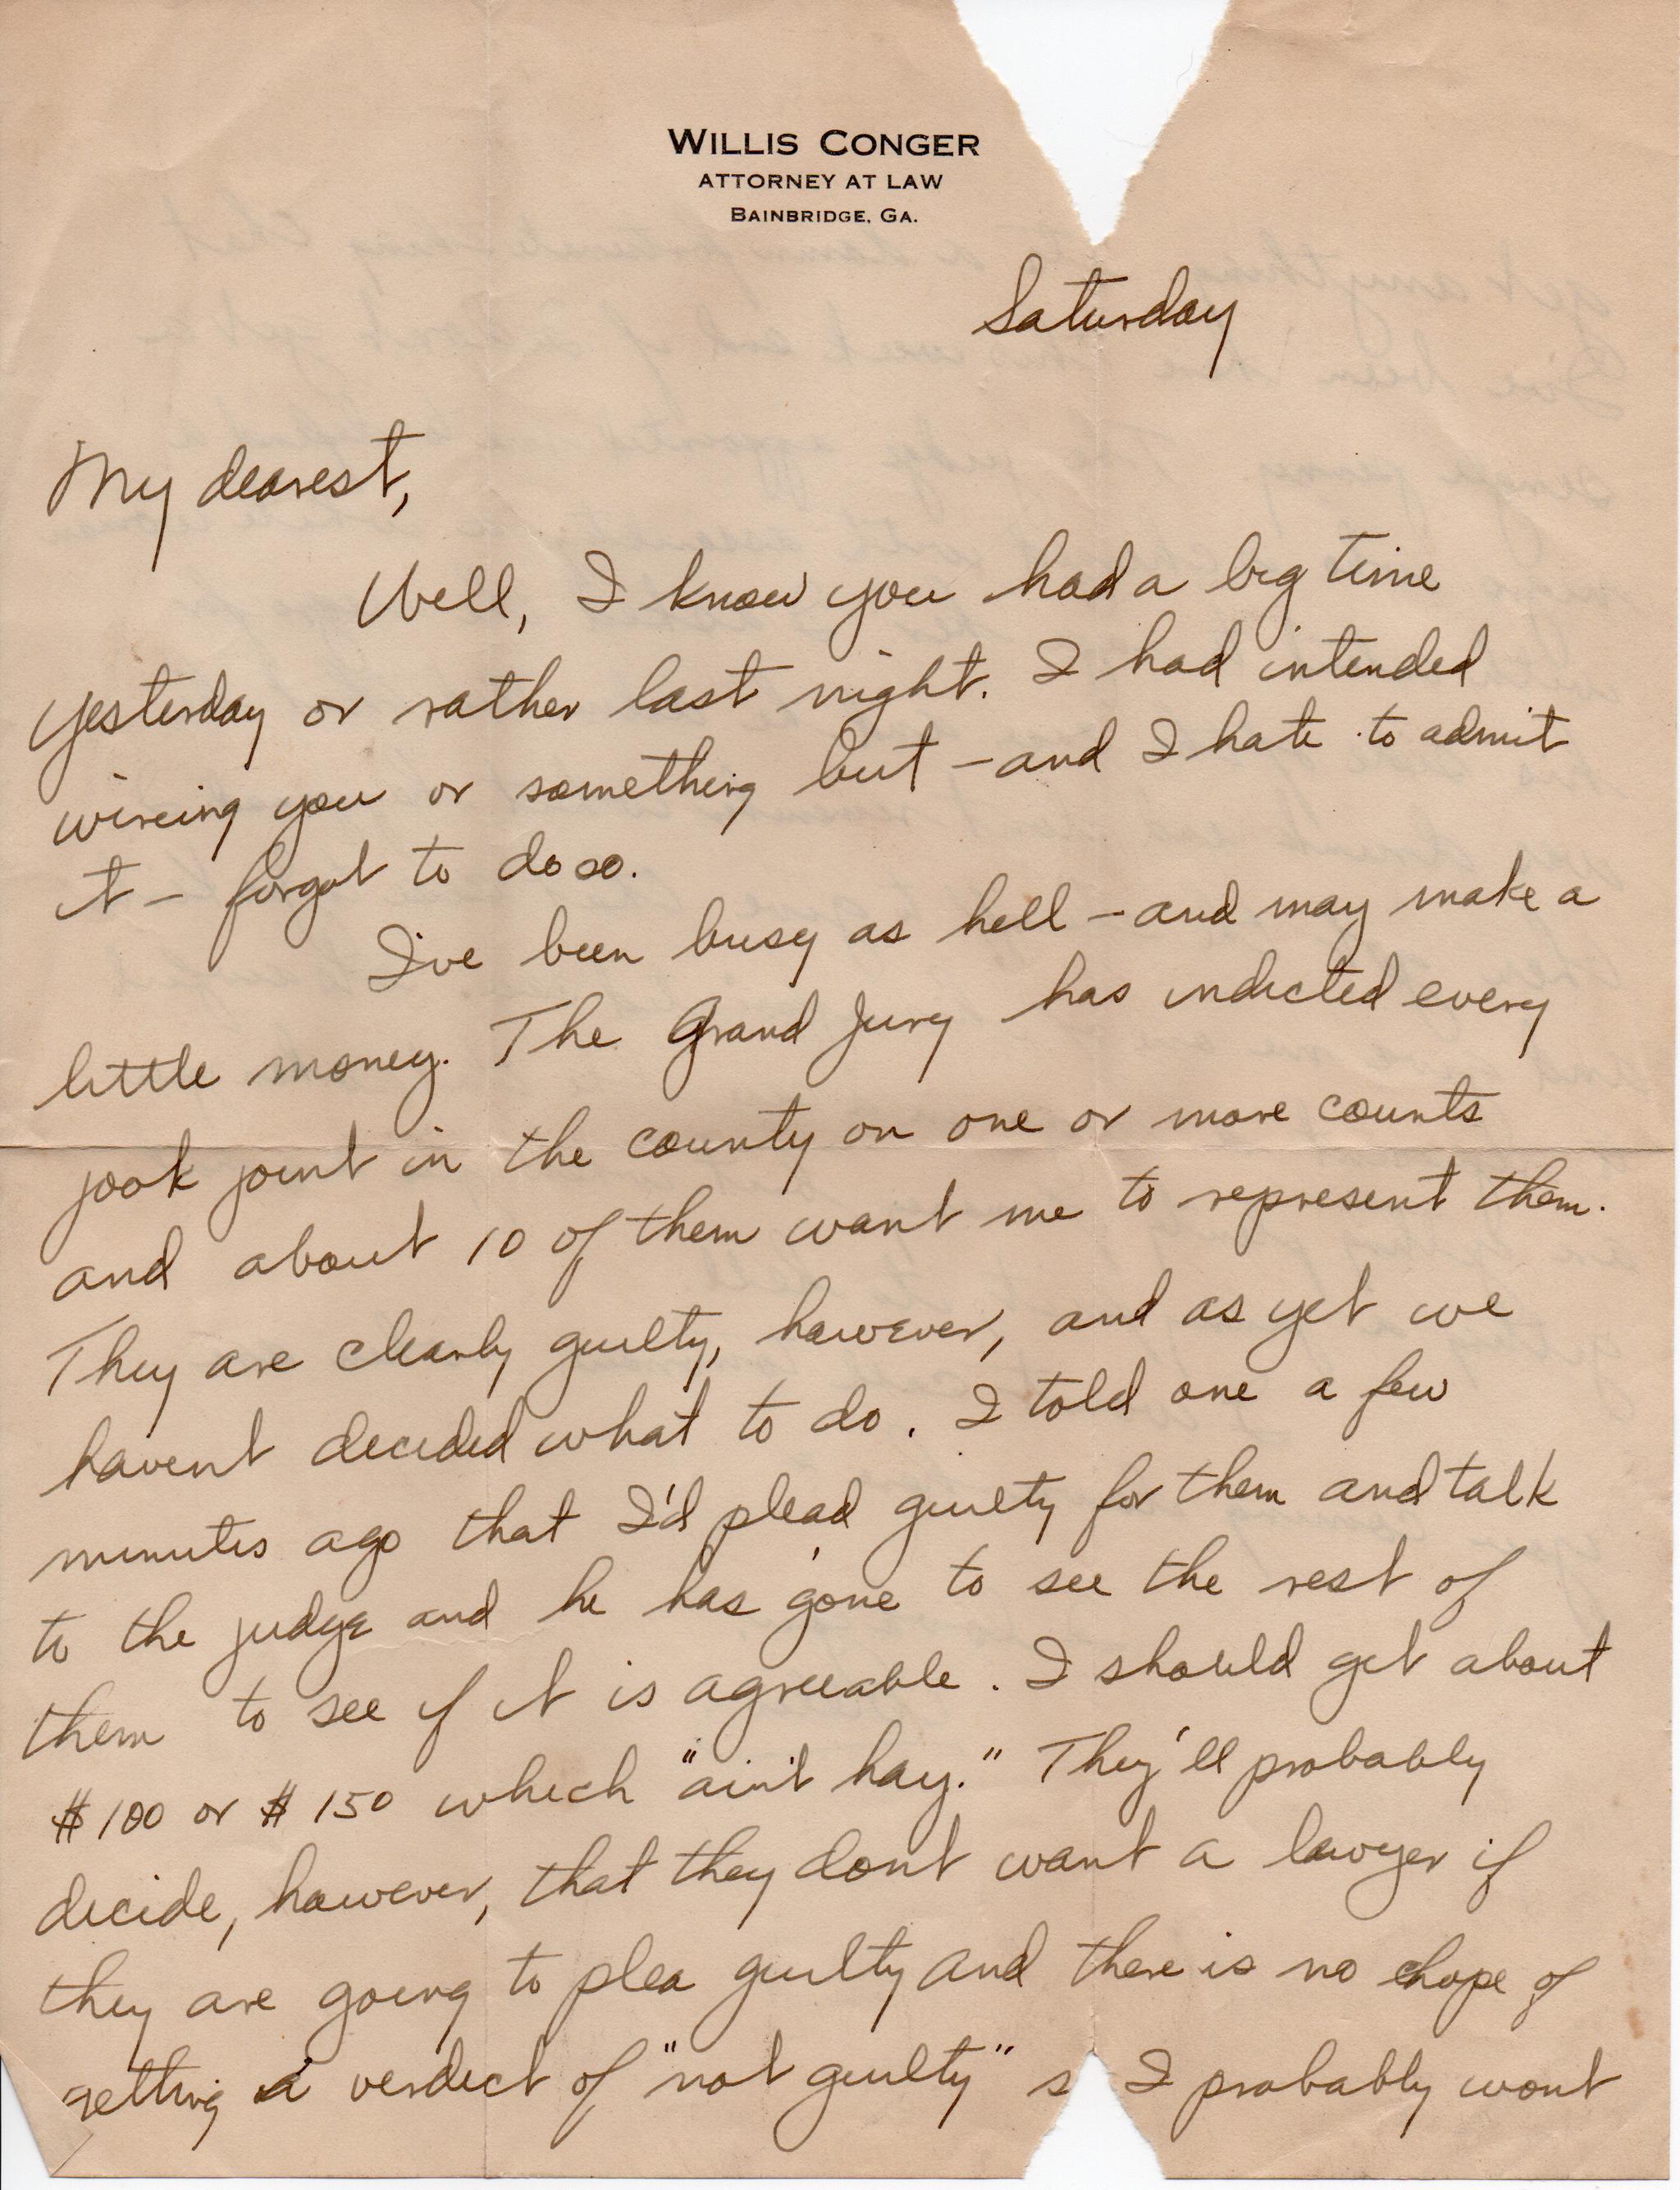 WILLIS CONGER
ATTORNEY AT LAW
BAINBRIDGE, GA.
Saturday
My dearest,
Well, I know you had a big time
yesterday or rather last night. I had intended
wireing you or something but – and I hate to admit
it – forgot to do so.
I've been busy as hell – and may make a
little money. The Grand Jury has indicted every
jook joint in the county on one or more counts
and about 10 of them want me to represent them.
They are clearly guilty, however, and as yet we
havent decided what to do. I told one a few
minutes ago that I'd plead guilty for them and talk
to the judge and he has gone to see the rest of
them to see if it is agreeable. I should get about
$100 or $150 which "ain't hay." They'll probably
decide, however, that they dont want a lawyer if
they are going to plea guilty and there is no hope of
getting a verdict of "not guilty" s I probably wont